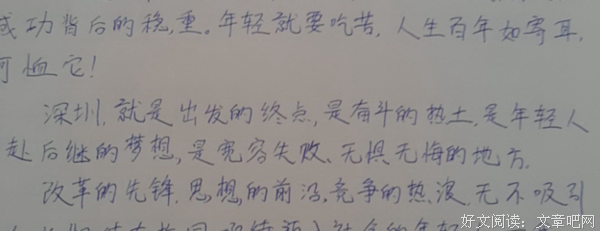 成功背后的稳,重。年轻就要吃苦,人生百年如寄耳,
可恤它!
深圳,就是出发的终点,是奋斗的热土,是年轻人
赴后继的梦想,是宽容失败、无惧无悔的地方。
改革的先锋,思想的前沿,竞争的热浪,无不吸引
好文阅读:文章吧网